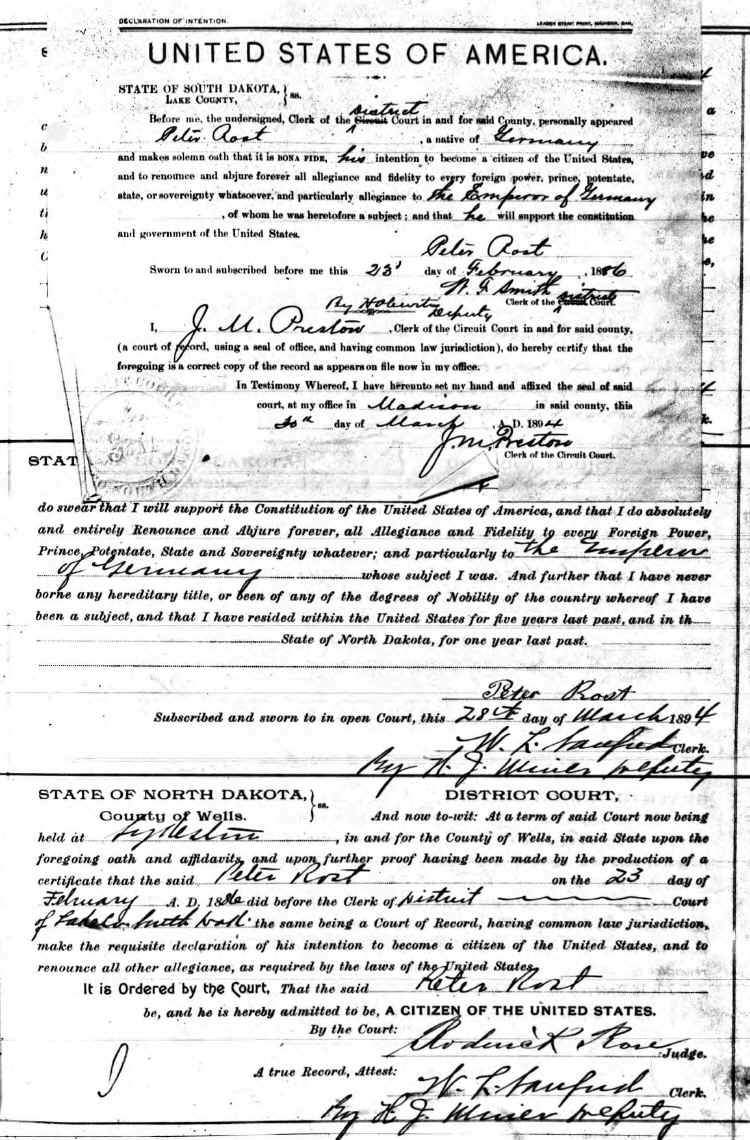 DECLARATION OF INTENTION.
UNITED STATES OF AMERICA.
STATE OF SOUTH DAKOTA, } ss.
LAKE COUNTY,
District
Before me, the undersigned, Clerk of the Circuit Court in and for said County, personally appeared
Peter Rost, a native of Germany
and makes solemn oath that it is BONA FIDE, his intention to become a citizen of the United States,
and to renounce and abjure forever all allegiance and fidelity to every foreign power, prince, potentate,
state, or sovereignty whatsoever, and particularly allegiance to the Emperor of Germany
, of whom he was heretofore a subject; and that he will support the constitution
and government of the United States.
Peter Rost
Sworn to and subscribed before me this 23d day of February, 1886
W. F. Smith
Clerk of the District Court.
By Deputy
I, J. M. Preston, Clerk of the Circuit Court in and for said county,
(a court of record, using a seal of office, and having common law jurisdiction), do hereby certify that the
foregoing is a correct copy of the record as appears on file now in my office.
In Testimony Whereof, I have hereunto set my hand and affixed the seal of said
court, at my office in Madison in said county, this
day of March, A. D. 1894
J M Preston
Clerk of the Circuit Court.
STAT
do swear that I will support the Constitution of the United States of America, and that I do absolutely
and entirely Renounce and Abjure forever, all Allegiance and Fidelity to every Foreign Power,
Prince, Potentate, State and Sovereignty whatever; and particularly to the Emperor
of Germany whose subject I was. And further that I have never
borne any hereditary title, or been of any of the degrees of Nobility of the country whereof I have
been a subject, and that I have resided within the United States for five years last past, and in th
State of North Dakota, for one year last past.
Peter Rost
Subscribed and sworn to in open Court, this 28th day of March 1894
W. L. Sanford Clerk.
By H. J. Miner Deputy
STATE OF NORTH DAKOTA, } ss. DISTRICT COURT,
County of Wells.
And now to-wit: At a term of said Court now being
held at Sykeston, in and for the County of Wells, in said State upon the
foregoing oath and affidavits and upon further proof having been made by the production of a
certificate that the said Peter Rost on the 23 day of
February A. D. 1886 did before the Clerk of District Court
of Lake Co. South Dak. the same being a Court of Record, having common law jurisdiction,
make the requisite declaration of his intention to become a citizen of the United States, and to
renounce all other allegiance, as required by the laws of the United States
It is Ordered by the Court, That the said Peter Rost
be, and he is hereby admitted to be, A CITIZEN OF THE UNITED STATES.
By the Court:
Roderick Rose Judge.
A true Record, Attest:
W. L. Sanford Clerk.
By H. J. Miner Deputy